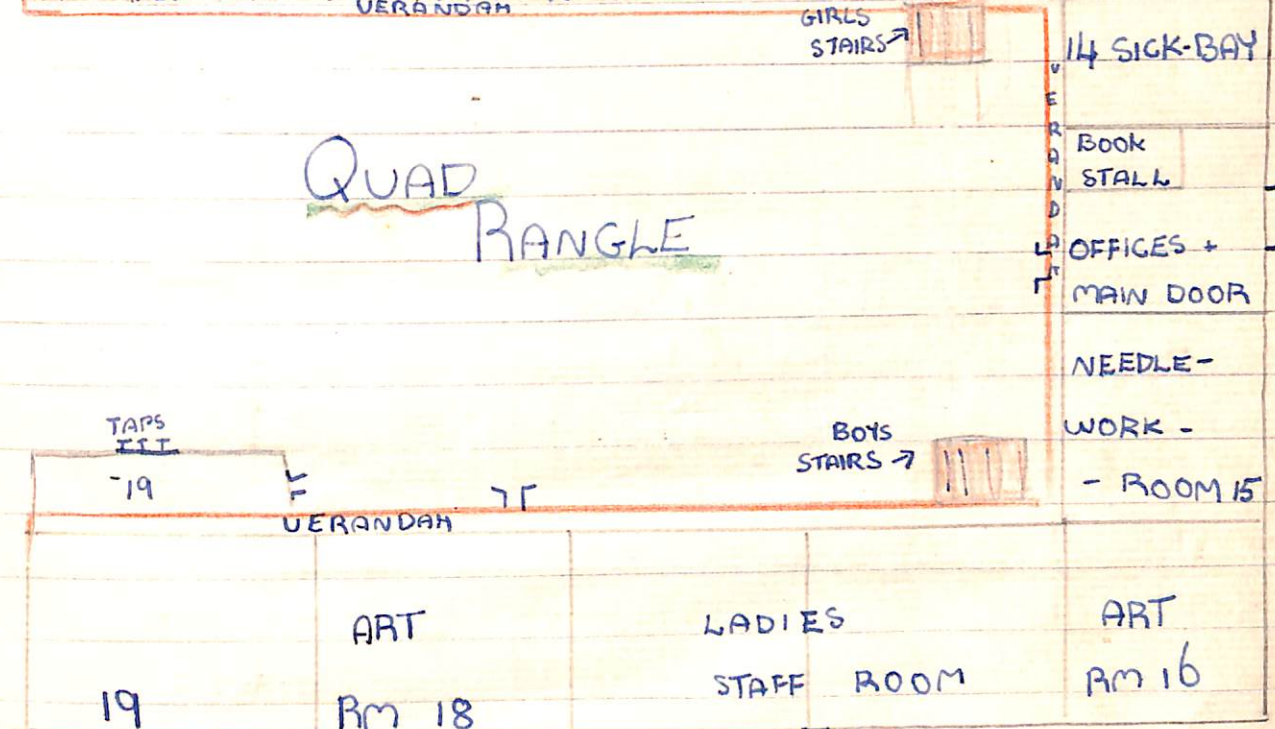 VERANDAH
GIRLS
STAIRS
14 SICK-BAY
VERANDAH
BOOK
STALL
QUAD
RANGLE
OFFICES +
MAIN DOOR
NEEDLE-
WORK -
- ROOM 15
TAPS
BOYS
STAIRS
-19
VERANDAH
19
ART
RM 18
LADIES
STAFF ROOM
ART
RM 16